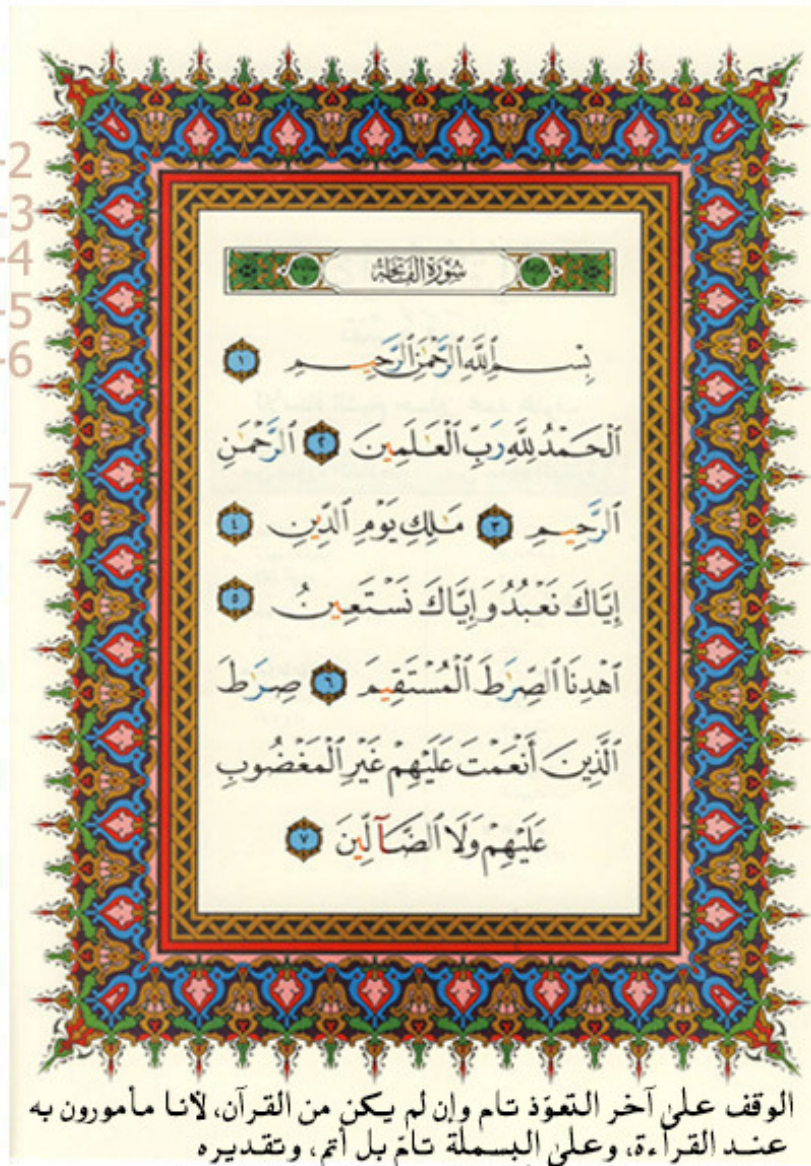 -2
-3
-4
-5
-6
-7
سُورَةُ الفَاتِحَة
بِسْمِ ٱللَّهِ ٱلرَّحْمَٰنِ ٱلرَّحِيمِ ١
ٱلْحَمْدُ لِلَّهِ رَبِّ ٱلْعَٰلَمِينَ ٢ ٱلرَّحْمَٰنِ
ٱلرَّحِيمِ ٣ مَٰلِكِ يَوْمِ ٱلدِّينِ ٤
إِيَّاكَ نَعْبُدُ وَإِيَّاكَ نَسْتَعِينُ ٥
ٱهْدِنَا ٱلصِّرَٰطَ ٱلْمُسْتَقِيمَ ٦ صِرَٰطَ
ٱلَّذِينَ أَنْعَمْتَ عَلَيْهِمْ غَيْرِ ٱلْمَغْضُوبِ
عَلَيْهِمْ وَلَا ٱلضَّآلِّينَ ٧
الوقف على آخر التعوّذ تام وإن لم يكن من القرآن، لأنا مأمورون به
عند القراءة، وعلى البسملة تامّ بل أتم، وتقديره